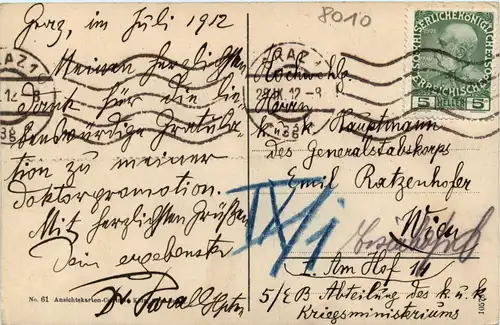 Graz, im Juli 1912
Meinen herzlichsten
Dank für die lie-
benswürdige Gratula-
tion zu meiner
Doktorpromotion.
Mit herzlichsten Grüßen
Dein ergebenster
Dr.
No. 61 Ansichtskarten-
8010
KAISERLICHE KÖNIGLICHE
ÖSTERREICHISCHE POST
5 HELLER 5
GRAZ 1
12-9
Hochwohlg.
Herrn
k. u. k. Hauptmann
des Generalstabskorps
Emil Ratzenhofer
Wien
I. Am Hof 14
5/EB Abteilung des k. u. k.
Kriegsministeriums
IX/1